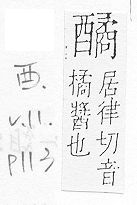 酉.
v.11.
p113
䤎
居律切音
橘醬也